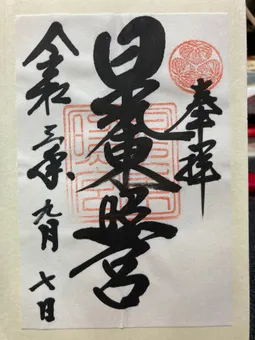 奉拝
日光東照宮
令和三年九月七日